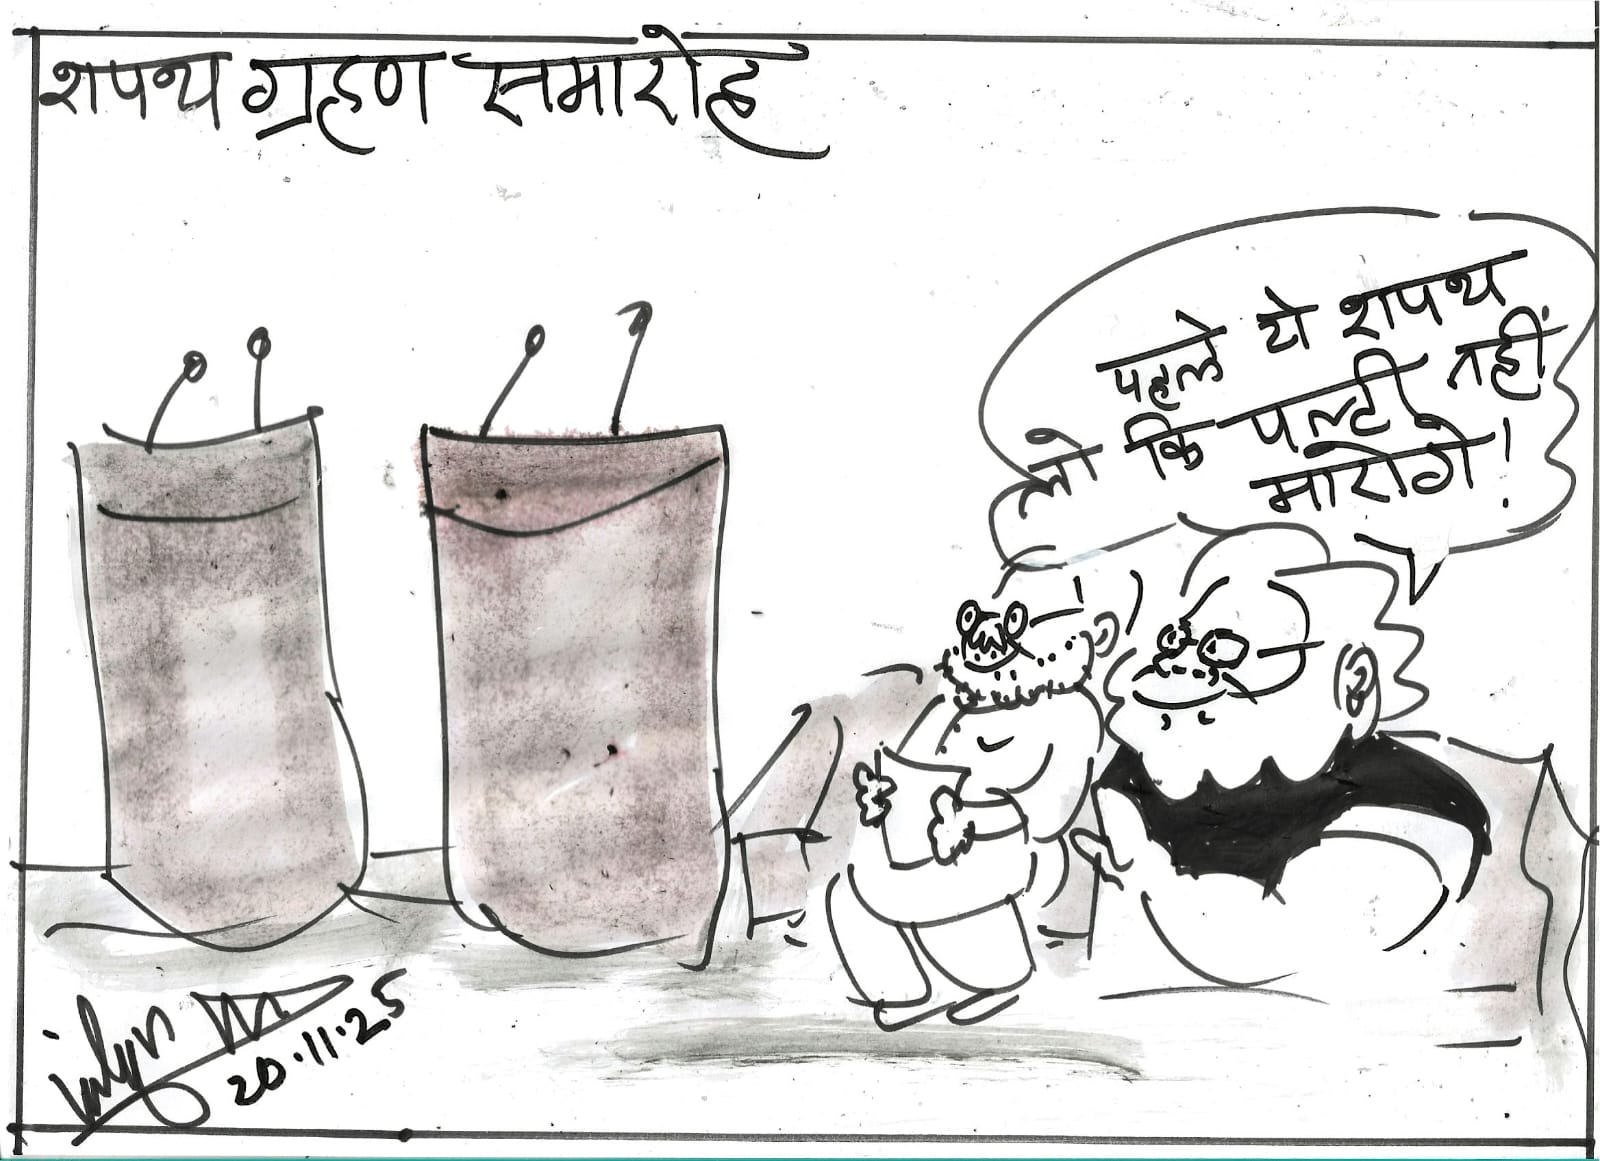 शपथ ग्रहण समारोह
पहले ये शपथ
लो कि पल्टी नहीं
मारोगे!
20.11.25